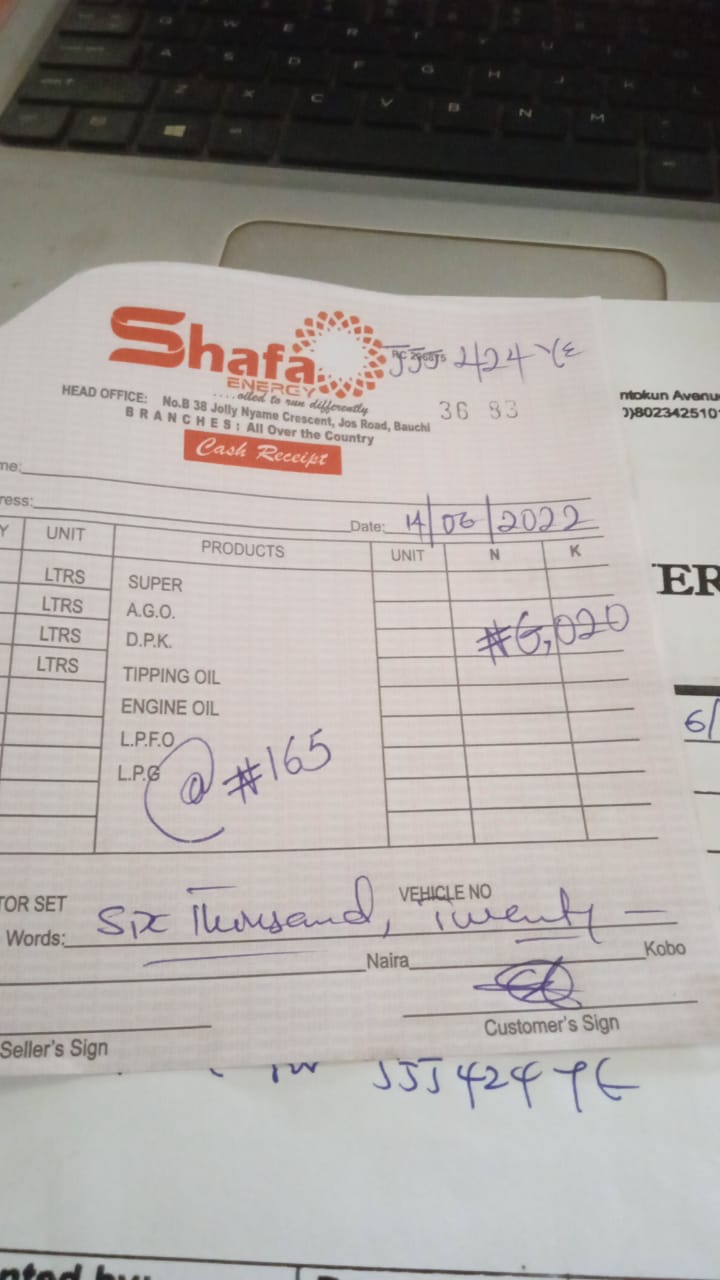 Q W E R T Y U
A S D F G H J K L
Z X C V B N M
Shafa
ENERGY
....oiled to run differently
JJJ 424 YE
HEAD OFFICE: No.B 38 Jolly Nyame Crescent, Jos Road, Bauchi
BRANCHES: All Over the Country
36 93
Cash Receipt
me:
ress:
Date: 14/06/2022
Y UNIT PRODUCTS UNIT N K
LTRS SUPER
LTRS A.G.O.
LTRS D.P.K. #6,020
LTRS TIPPING OIL
ENGINE OIL
L.P.F.O
L.P.G
@ #165
TOR SET VEHICLE NO
Words: Six Thousand, Twenty —
Naira Kobo
Seller's Sign Customer's Sign
ntokun Avenu
0)802342510
ER
6/
JJJ 424 YE
nted by: